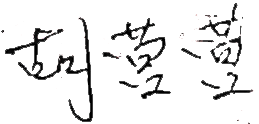 胡莹莹